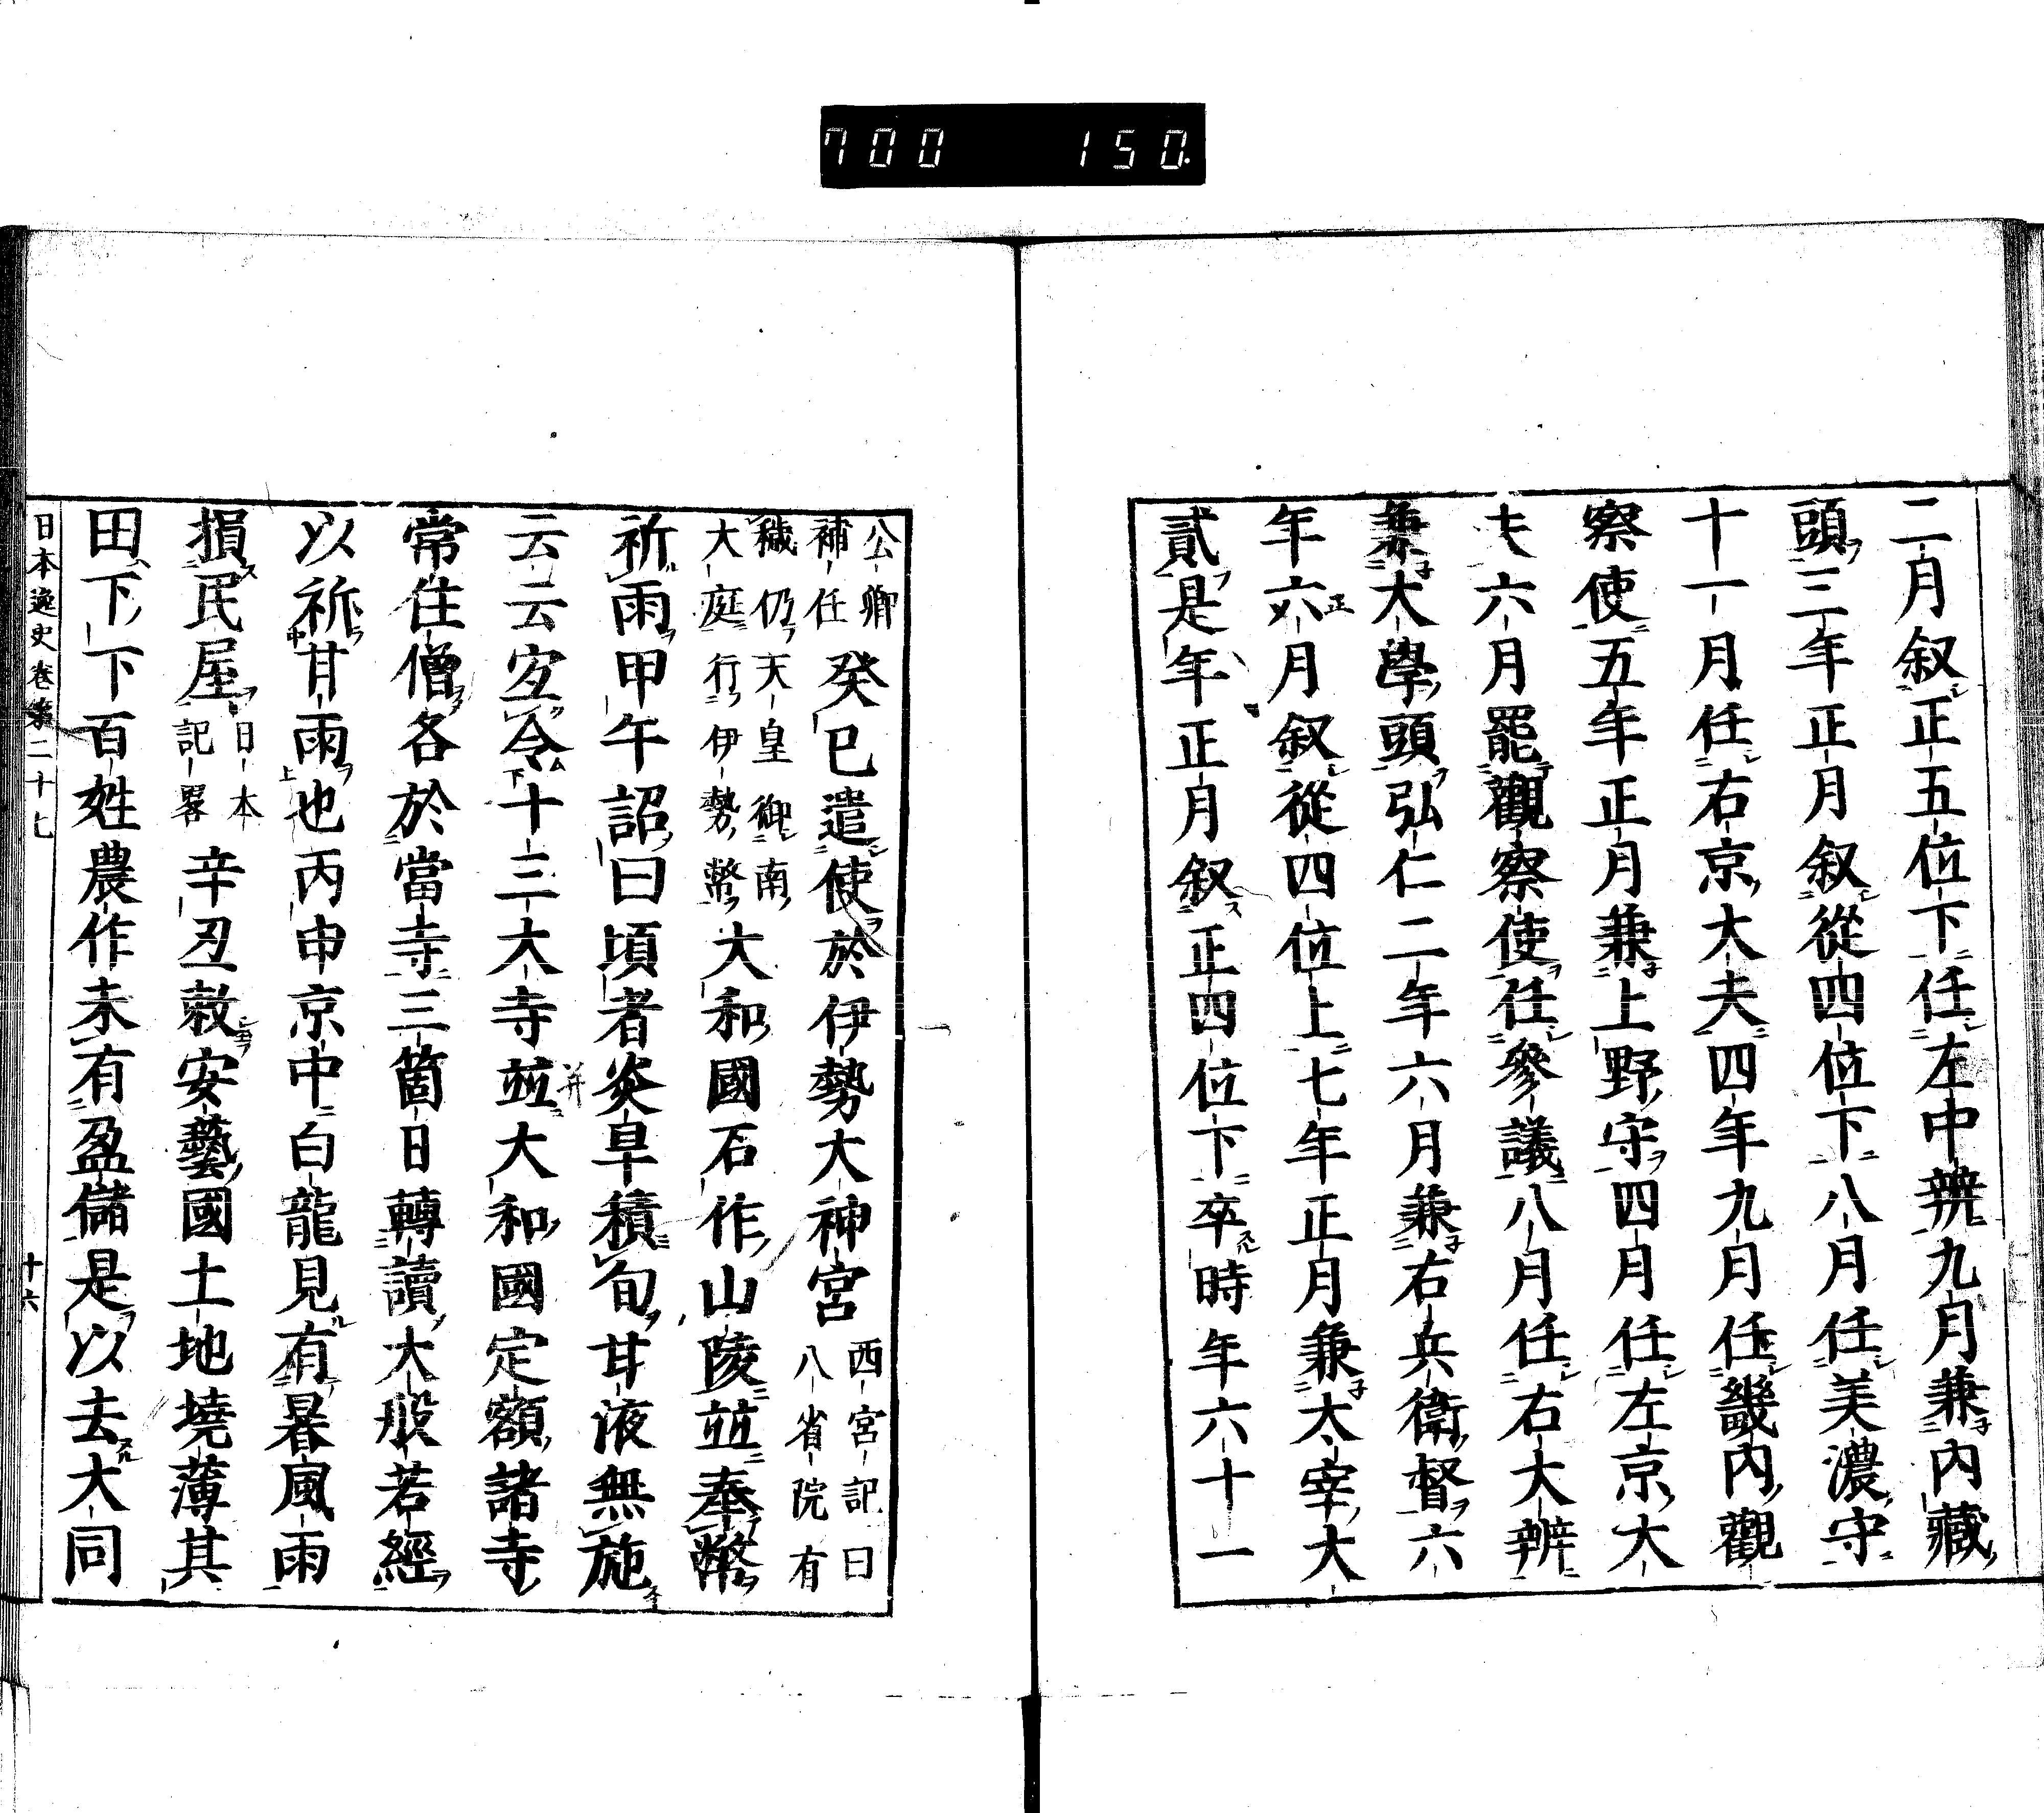 700 150.
二月叙正五位下任左中辨九月兼内藏
頭三年正月叙從四位下八月任美濃守
十一月任右京大夫四年九月任畿内觀
察使五年正月兼上野守四月任左京大
夫六月罷觀察使任參議八月任右大辨
兼大學頭弘仁二年六月兼右兵衛督六
年六月叙從四位上七年正月兼太宰大
貳是年正月叙正四位下卒時年六十一
公卿
補任
癸巳遣使於伊勢大神宮
西宮記曰
八省院有
穢仍天皇御南
大庭行伊勢幣
大和國石作山陵並奉幣
祈雨甲午詔曰頃者炎旱積旬甘液無施
云云宜令十三大寺並大和國定額諸寺
常住僧各於當寺三箇日轉讀大般若經
以祈甘雨也丙申京中白龍見有暴風雨
損民屋
日本
記畧
辛丑敕安藝國土地墝薄其
田下下百姓農作未有盈儲是以去大同
日本逸史卷第二十七
十六